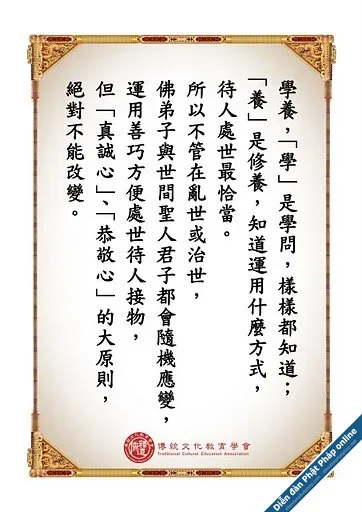 學養，「學」是學問，樣樣都知道；
「養」是修養，知道運用什麼方式，
待人處世最恰當。
所以不管在亂世或治世，
佛弟子與世間聖人君子都會隨機應變，
運用善巧方便處世待人接物，
但「真誠心」、「恭敬心」的大原則，
絕對不能改變。
傳統文化教育學會
Traditional Cultural Education Association
Diễn đàn Phật Pháp online